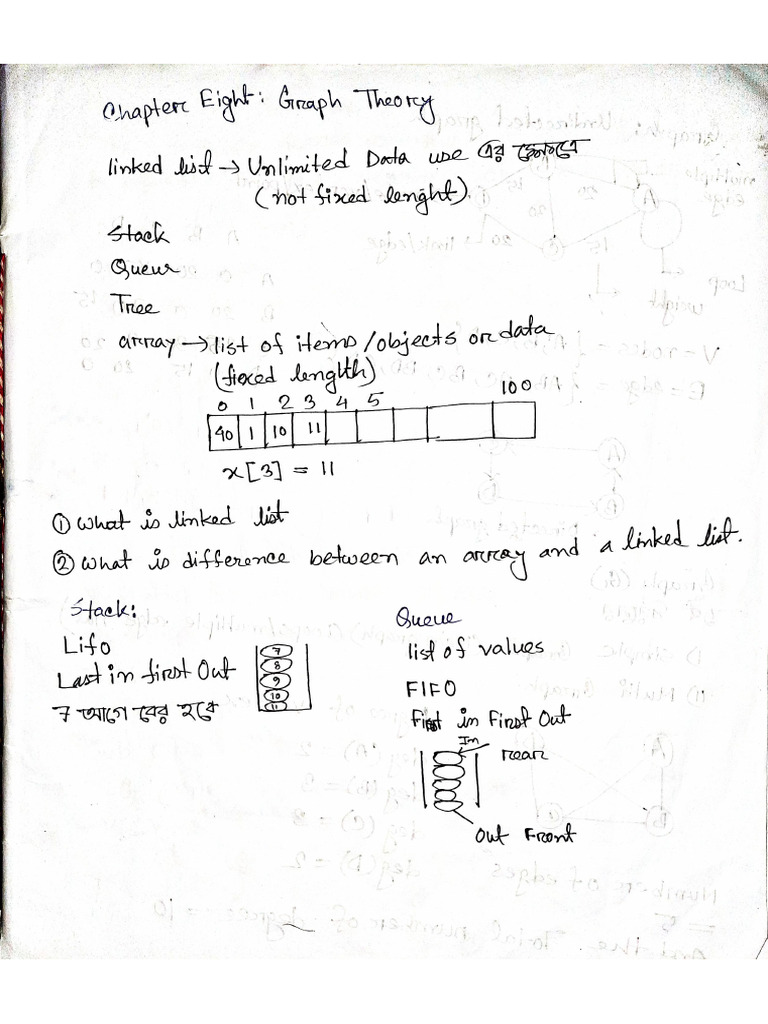 Chapter Eight: Graph Theory
linked list → Unlimited Data use এর ক্ষেত্রে
(not fixed lenght).
Stack
Queue
Tree
array → list of items/objects or data
(fixed length)
0 1 2 3 4 5 100
40 1 10 11
x[3] = 11
① what is linked list
② what is difference between an array and a linked list.
Stack:
Lifo
Last in first Out
7 আগে বের হবে
7
8
9
10
11
Queue
list of values
FIFO
First in First Out
In
rear
Out Front